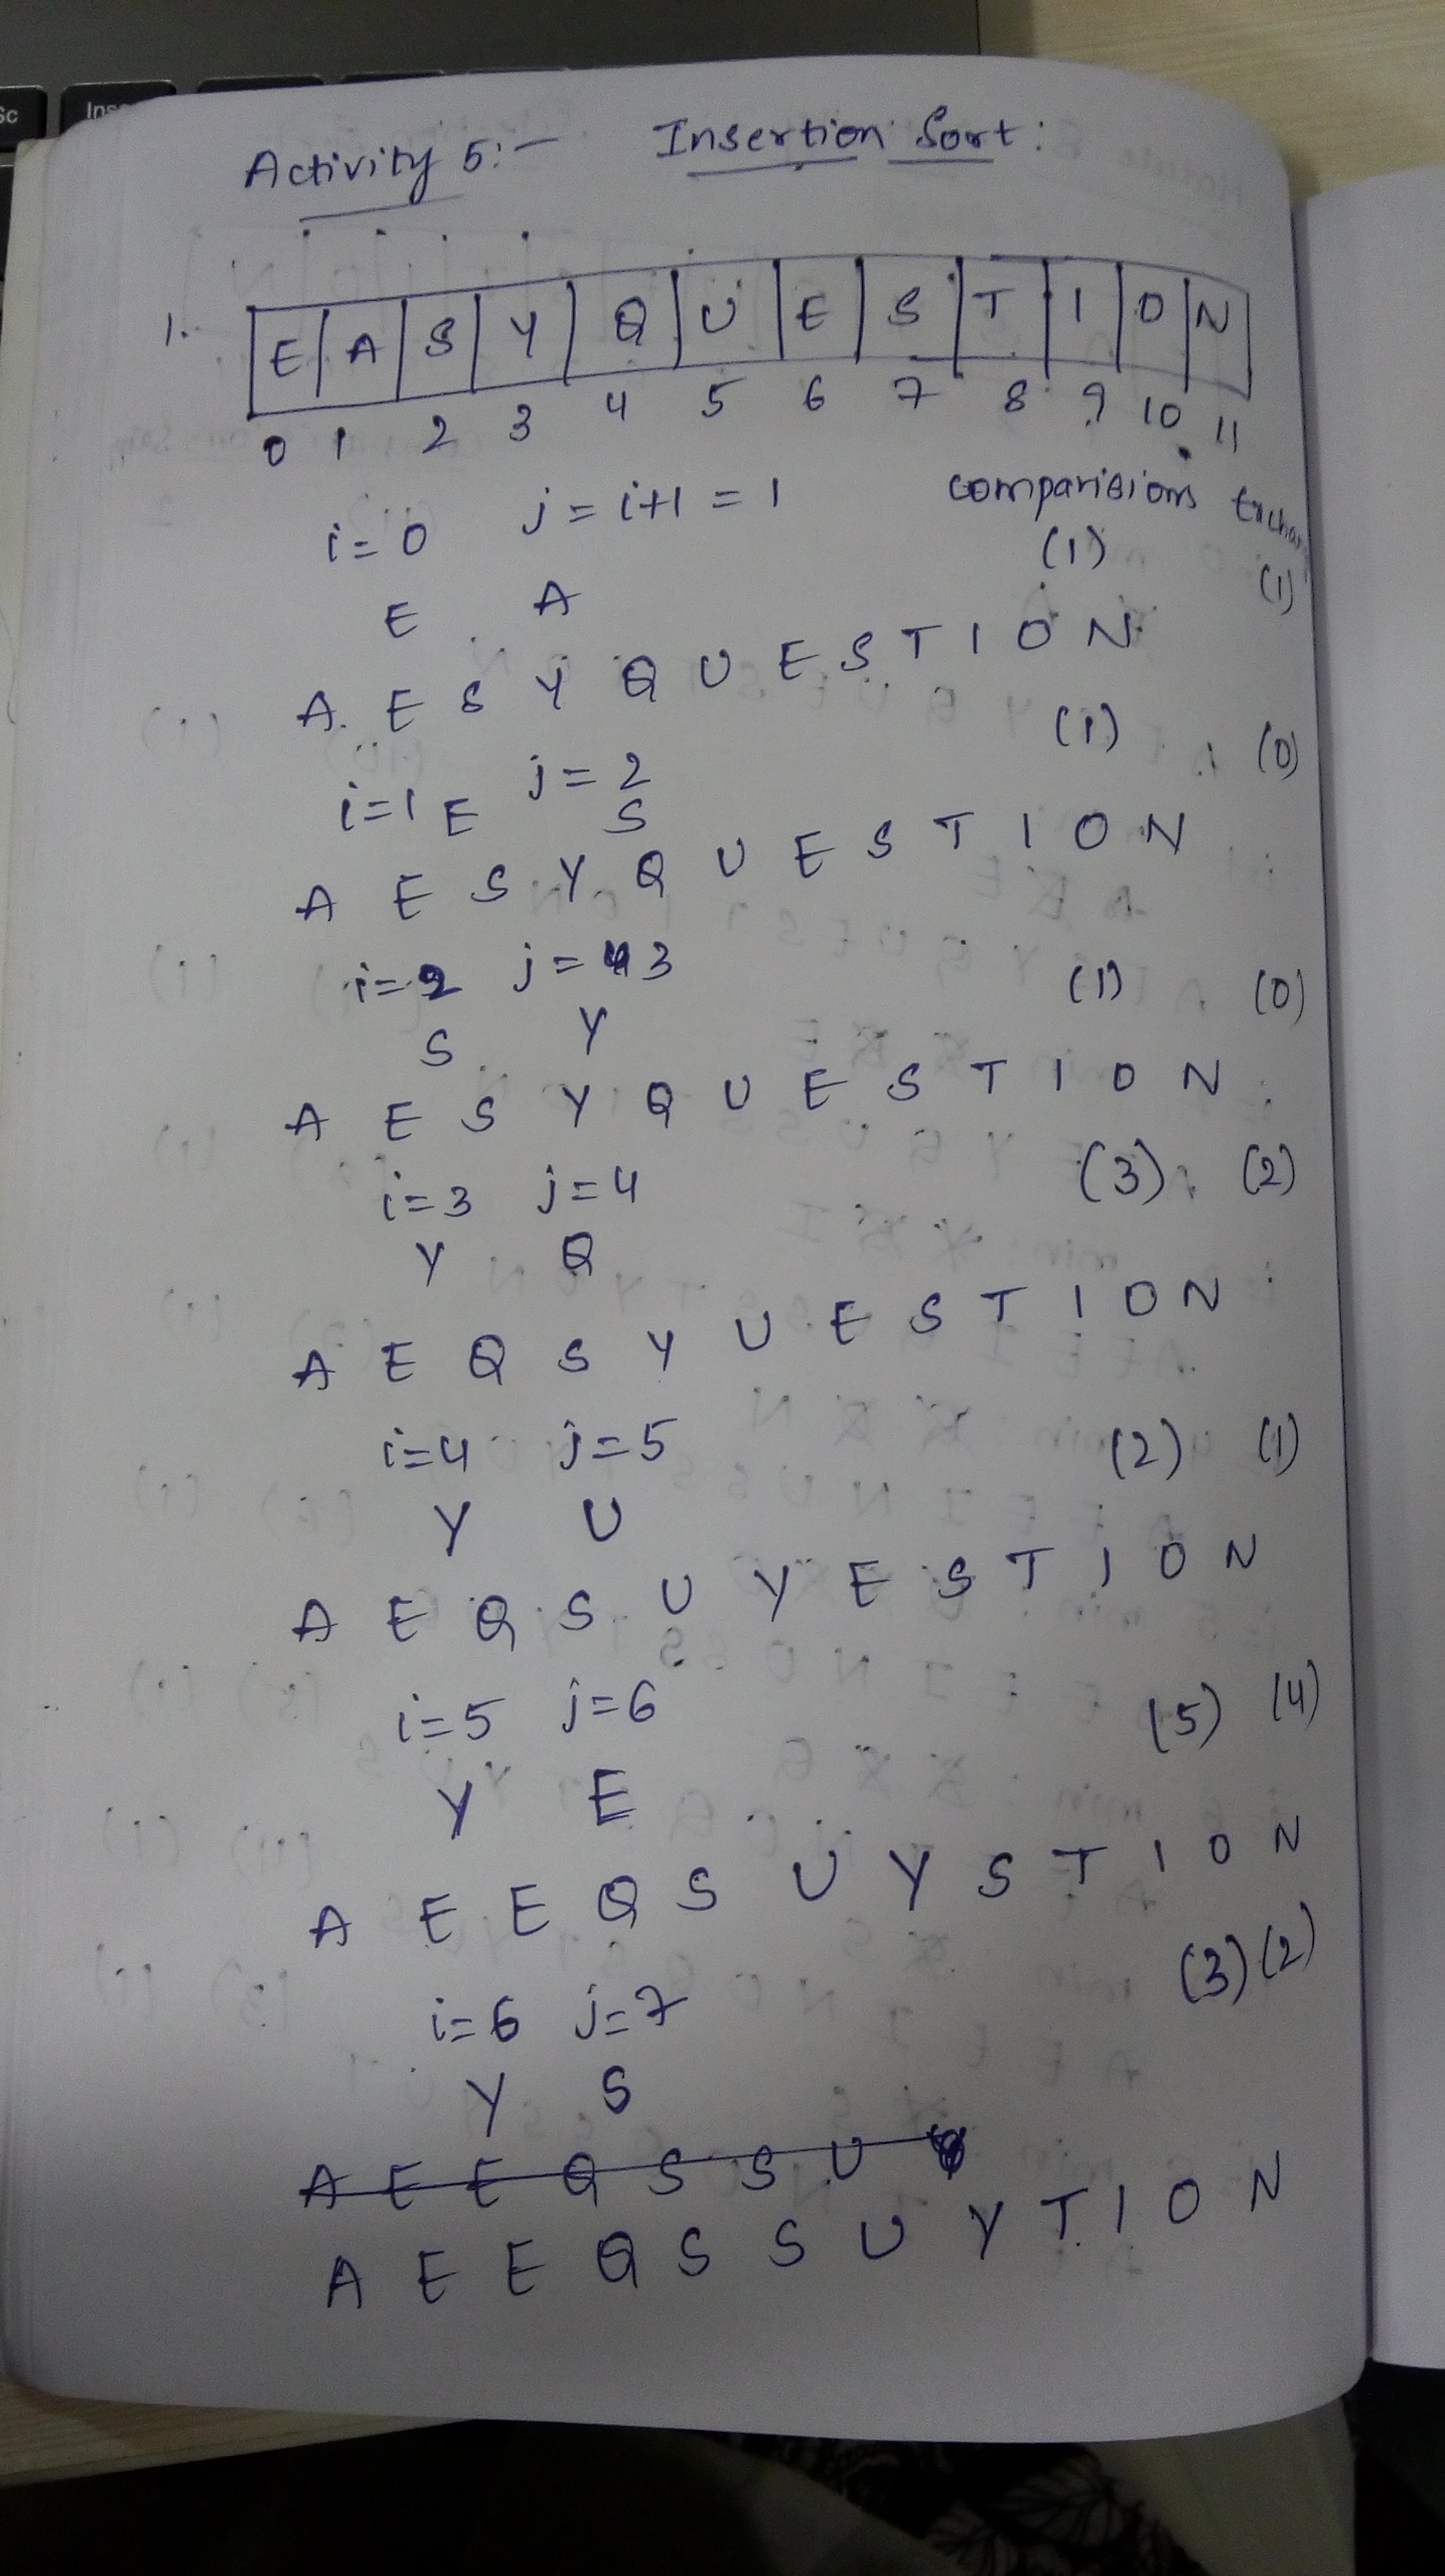 Activity 5:- Insertion Sort:
1. E A S Y Q U E S T I O N
0 1 2 3 4 5 6 7 8 9 10 11
i=0 j=i+1=1 comparisions
E A (1) (1)
A. E S Y Q U E S T I O N
i=1 j=2 (1) (0)
E S
A E S Y Q U E S T I O N
i=2 j=3 (1) (0)
S Y
A E S Y Q U E S T I O N
i=3 j=4 (3) (2)
Y Q
A E Q S Y U E S T I O N
i=4 j=5 (2) (1)
Y U
A E Q S U Y E S T I O N
i=5 j=6 (5) (4)
Y E
A E E Q S U Y S T I O N
i=6 j=7 (3) (2)
Y S
A E E Q S S U
A E E Q S S U Y T I O N